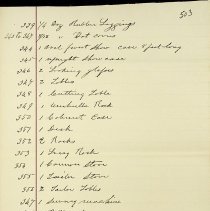 503
339 1/4 Doz Rubber Leggings
340 to 343 " Dot
344 1 show case
345 1 upright show case
346 2 Looking glasses
347 2 Tables
348 1 Cutting Table
349 1 Umbrella Rack
350 1 Cabinet Case
351 1 Desk
352 2 Racks
353 1 Rack
354 1 Cannon Stove
355 1 Stove
356 2 Tailor Tables
347 1 Sewing machine